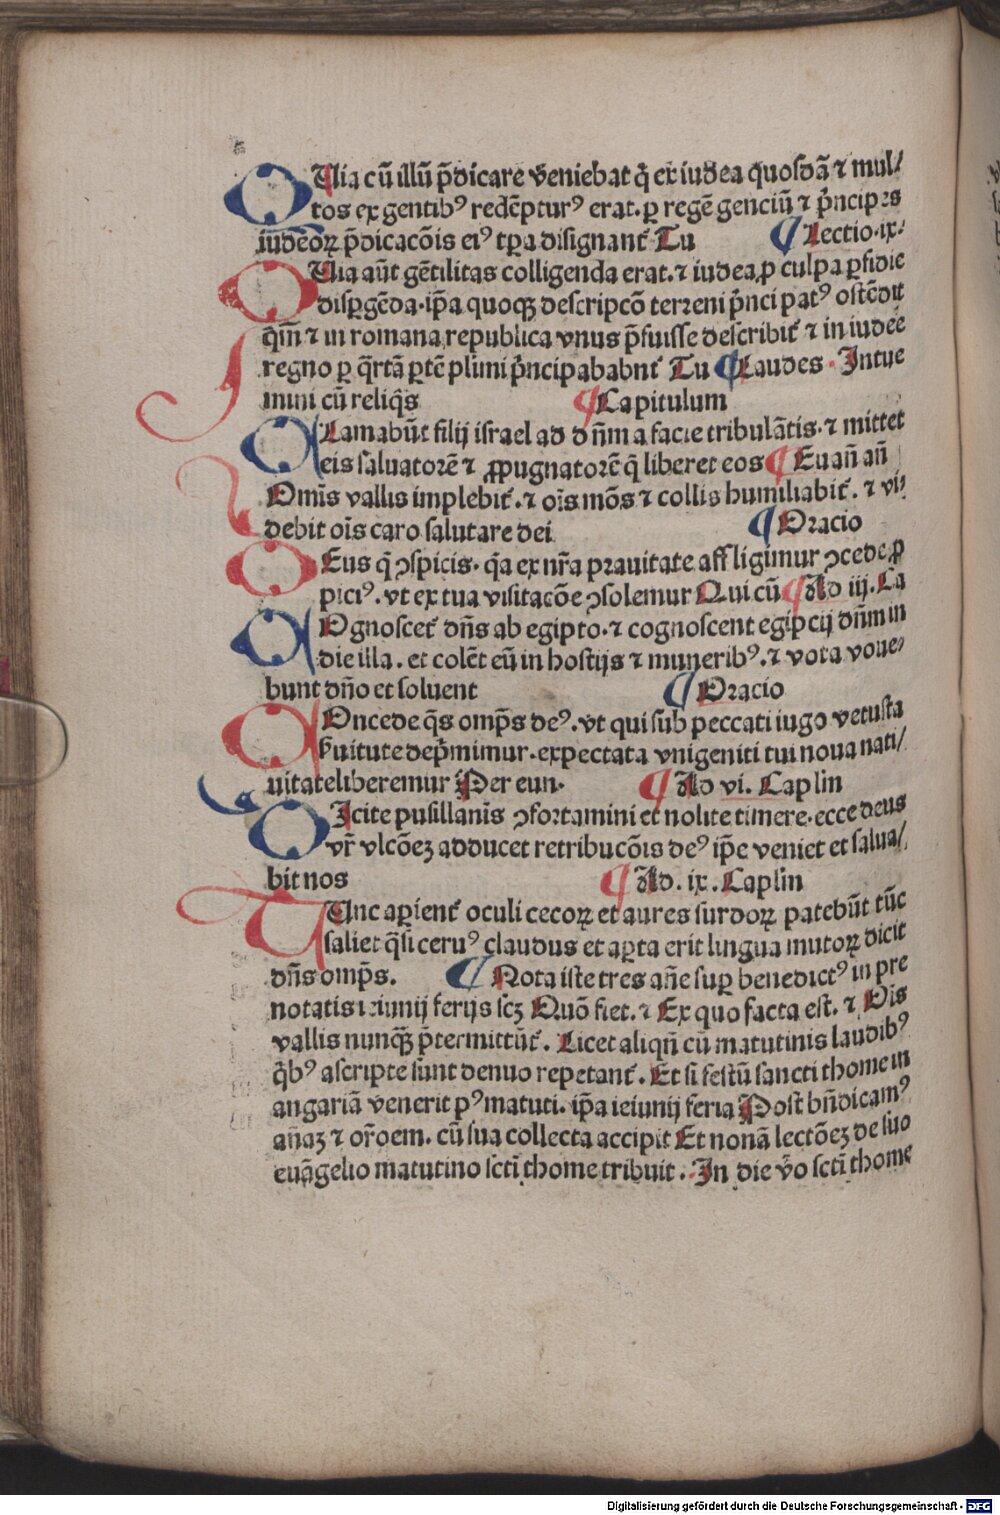 QUia cū illū p̄dicare veniebat q̇ ex iudea quosdā ⁊ mul/
tos ex gentibꝰ redēpturꝰ erat. ꝑ regē genciū ⁊ p̄ncipes
iudeoꝝ p̄dicacōis eiꝰ tꝑa disignant᷑ Tu ¶ Lectio .ix.
QUia aūt gētilitas colligenda erat. ⁊ iudea ꝓ culpa ꝑfidie
disꝑgēda. ip̄a quoqꝫ descripcō terreni p̄ncipatꝰ ostēdit
q̄m̄ ⁊ in romana republica vnus p̄fuisse describit᷑ ⁊ in iudee
regno ꝑ q̄rtā ꝑtē plimi p̄ncipabant᷑ Tu ¶ Laudes . Intue
mini cū reliq̄s ¶ Capitulum
CLamabūt filij israel ad dn̄m a facie tribulātis. ⁊ mittet
eis saluatorē ⁊ ꝓpugnatorē q̇ liberet eos ¶ Euan̄ an̄
Omis̄ vallis implebit᷑. ⁊ ois̄ mōs ⁊ collis humiliabit᷑. ⁊ vi/
debit ois̄ caro salutare dei ¶ Oracio
DEus q̇ ꝯspicis. q̄a ex nr̄a prauitate affligimur ꝯcede ꝓ
piciꝰ. vt ex tua visitacōe ꝯsolemur Qui cū ¶ Ad iij. Ca
COgnoscet᷑ dn̄s ab egipto. ⁊ cognoscent egipcij dn̄m in
die illa. et colēt eū in hostijs ⁊ muneribꝰ. ⁊ vota voue/
bunt dn̄o et soluent ¶ Oracio
COncede q̄s omp̄s deꝰ. vt qui sub peccati iugo vetusta
ẜuitute dep̄mimur. expectata vnigeniti tui noua nati/
uitate liberemur Per eun. ¶ Ad vi. Caplm
DIcite pusillanis̄ ꝯfortamini et nolite timere. ecce deus
vr̄ vlcōeꝫ adducet retribucōis deꝰ ip̄e veniet et salua/
bit nos ¶ Ad. ix. Caplm
TUnc aꝑient᷑ oculi cecoꝝ et aures surdoꝝ patebūt tūc
saliet q̄si ceruꝰ claudus et aꝑta erit lingua mutoꝝ dicit
dn̄s omp̄s. ¶ Nota iste tres an̄e suꝑ benedictꝰ in pre
notatis ieiunij ferijs scꝫ Quō fiet. ⁊ Ex quo facta est. ⁊ Ois
vallis nunqꝫ p̄termittūt᷑. Licet aliqn̄ cū matutinis laudibꝰ
q̄bꝰ ascripte sunt denuo repetant᷑. Et si festū sancti thome in
angariā venerit pꝰ matuti. ip̄a ieiunij feria Post bn̄dicamꝰ
an̄aꝫ ⁊ or̄oem. cū sua collecta accipit Et nonā lectōeꝫ de suo
euāgelio matutino scti̅ thome tribuit. . In die v̄o scti̅ thome
Digitalisierung gefördert durch die Deutsche Forschungsgemeinschaft - DFG